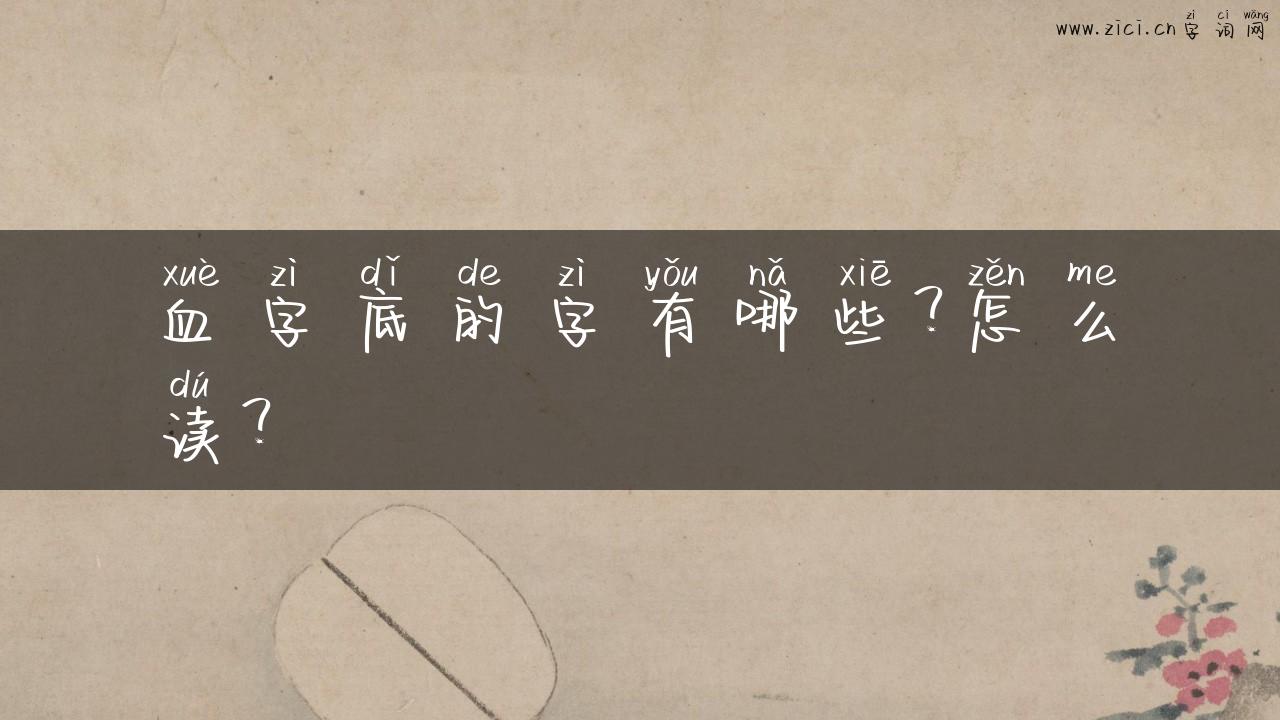 zì cí wǎng
www.zici.cn字词网
xuè zì dǐ de zì yǒu nǎ xiē zěn me
血字底的字有哪些？怎么
dú
读？